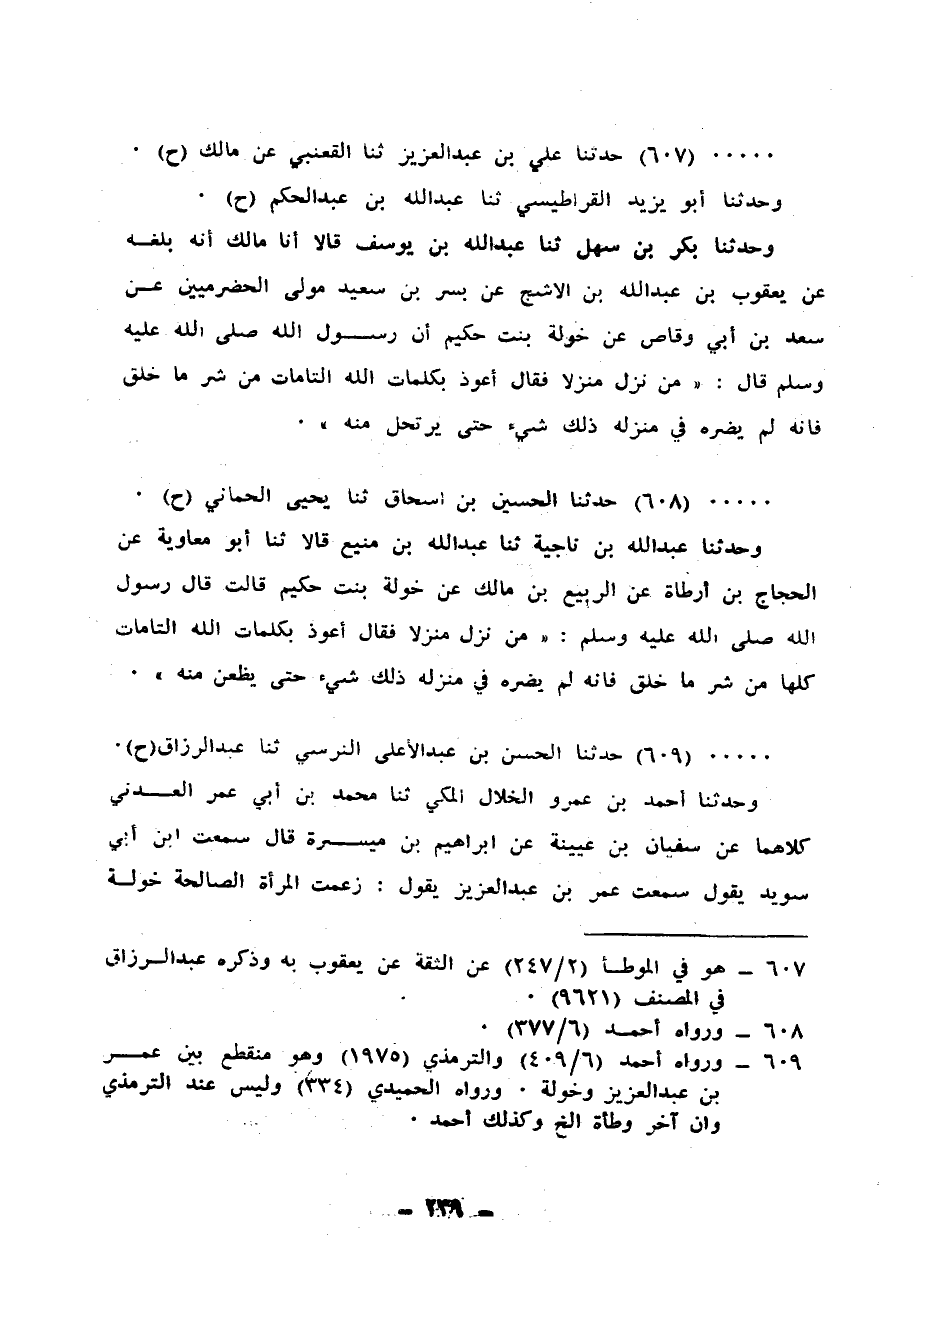 ..... (٦٠٧) حدثنا علي بن عبدالعزيز ثنا القعنبي عن مالك (ح) .
وحدثنا أبو يزيد القراطيسي ثنا عبدالله بن عبدالحكم (ح) .
وحدثنا بكر بن سهل ثنا عبدالله بن يوسف قالا أنا مالك أنه بلغه
عن يعقوب بن عبدالله بن الاشج عن بسر بن سعيد مولى الحضرميين عن
سعد بن أبي وقاص عن خولة بنت حكيم أن رسول الله صلى الله عليه
وسلم قال : « من نزل منزلا فقال أعوذ بكلمات الله التامات من شر ما خلق
فانه لم يضره في منزله ذلك شيء حتى يرتحل منه » .
..... (٦٠٨) حدثنا الحسين بن اسحاق ثنا يحيى الحماني (ح) .
وحدثنا عبدالله بن ناجية ثنا عبدالله بن منيع قالا ثنا أبو معاوية عن
الحجاج بن أرطاة عن الربيع بن مالك عن خولة بنت حكيم قالت قال رسول
الله صلى الله عليه وسلم : « من نزل منزلا فقال أعوذ بكلمات الله التامات
كلها من شر ما خلق فانه لم يضره في منزله ذلك شيء حتى يظعن منه » .
..... (٦٠٩) حدثنا الحسن بن عبدالأعلى النرسي ثنا عبدالرزاق(ح).
وحدثنا أحمد بن عمرو الخلال المكي ثنا محمد بن أبي عمر العدني
كلاهما عن سفيان بن عيينة عن ابراهيم بن ميسرة قال سمعت ابن أبي
سويد يقول سمعت عمر بن عبدالعزيز يقول : زعمت المرأة الصالحة خولة
٦٠٧ ـ هو في الموطأ (٢٤٧/٢) عن الثقة عن يعقوب به وذكره عبدالرزاق
في المصنف (٩٦٢١) .
٦٠٨ ـ ورواه أحمد (٣٧٧/٦) .
٦٠٩ ـ ورواه أحمد (٤٠٩/٦) والترمذي (١٩٧٥) وهو منقطع بين عمر
بن عبدالعزيز وخولة . ورواه الحميدي (٣٣٤) وليس عند الترمذي
وان آخر وطأة الخ وكذلك أحمد .
ـ ٢٣٩ ـ